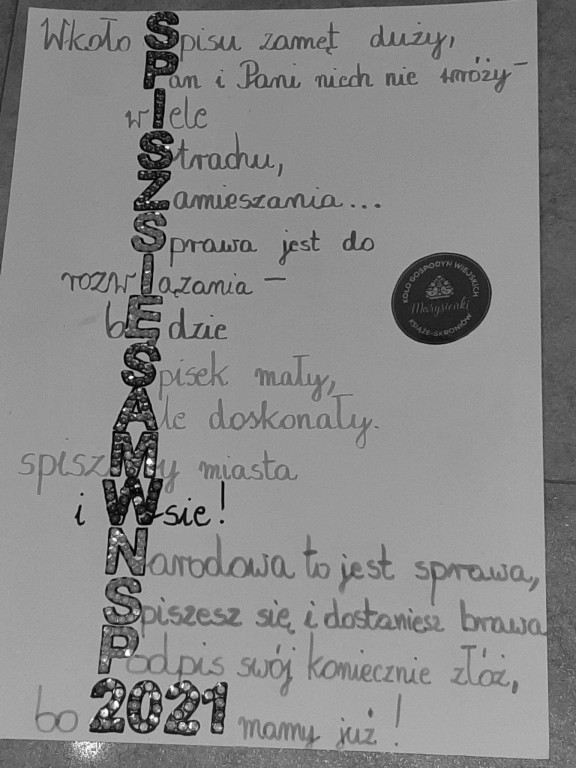 Wkoło Spisu zamęt duży,
Pan i Pani niech nie wróży -
wIele
Strachu,
Zamieszania...
Sprawa jest do
rozwIązania -
bĘdzie
Spisek mały,
Ale doskonały.
spiszMy miasta
i Wsie!
Narodowa to jest sprawa,
Spiszesz się i dostaniesz brawa
Podpis swój koniecznie złóż,
bo 2021 mamy już!
KOŁO GOSPODYŃ WIEJSKICH
Marysieńki
KSIĄŻE-SKRONIÓW